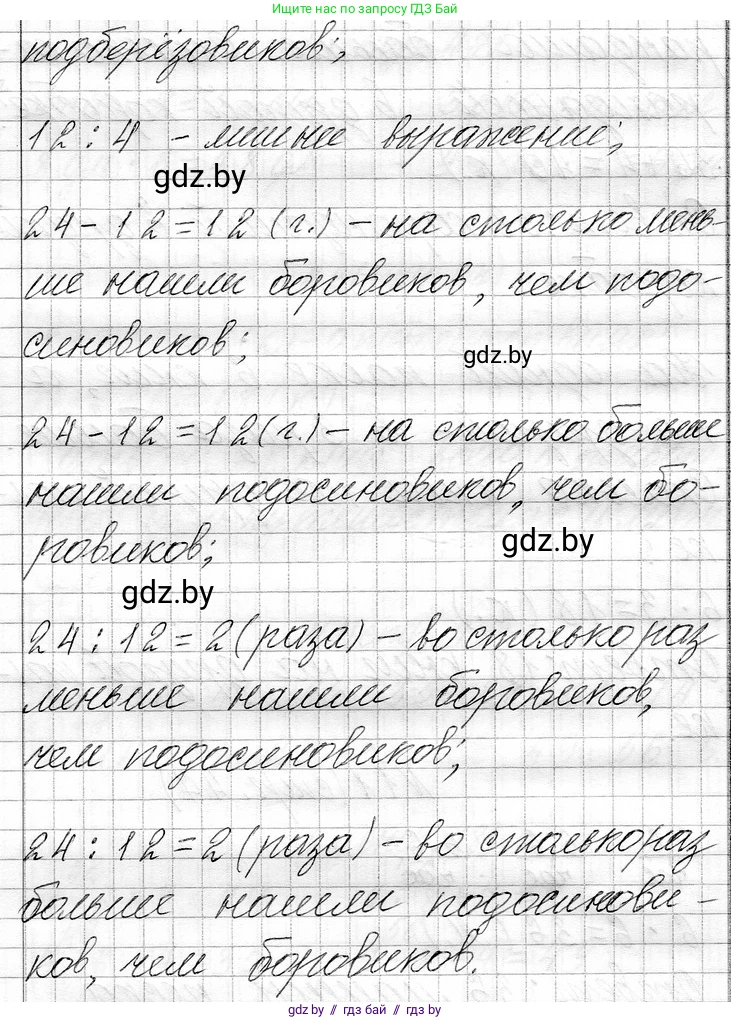 Ищите нас по запросу ГДЗ Бай
подберёзовиков;
12 : 4 - лишнее выражение;
gdz.by
24 - 12 = 12 (г.) - на столько мень-
ше нашли боровиков, чем подо-
синовиков;
gdz.by
24 - 12 = 12 (г.) - на столько больше
нашли подосиновиков, чем бо-
ровиков;
gdz.by
gdz.by
24 : 12 = 2 (раза) - во столько раз
меньше нашли боровиков,
чем подосиновиков;
24 : 12 = 2 (раза) - во столько раз
больше нашли подосинови-
ков, чем боровиков.
gdz.by // гдз бай // гдз by